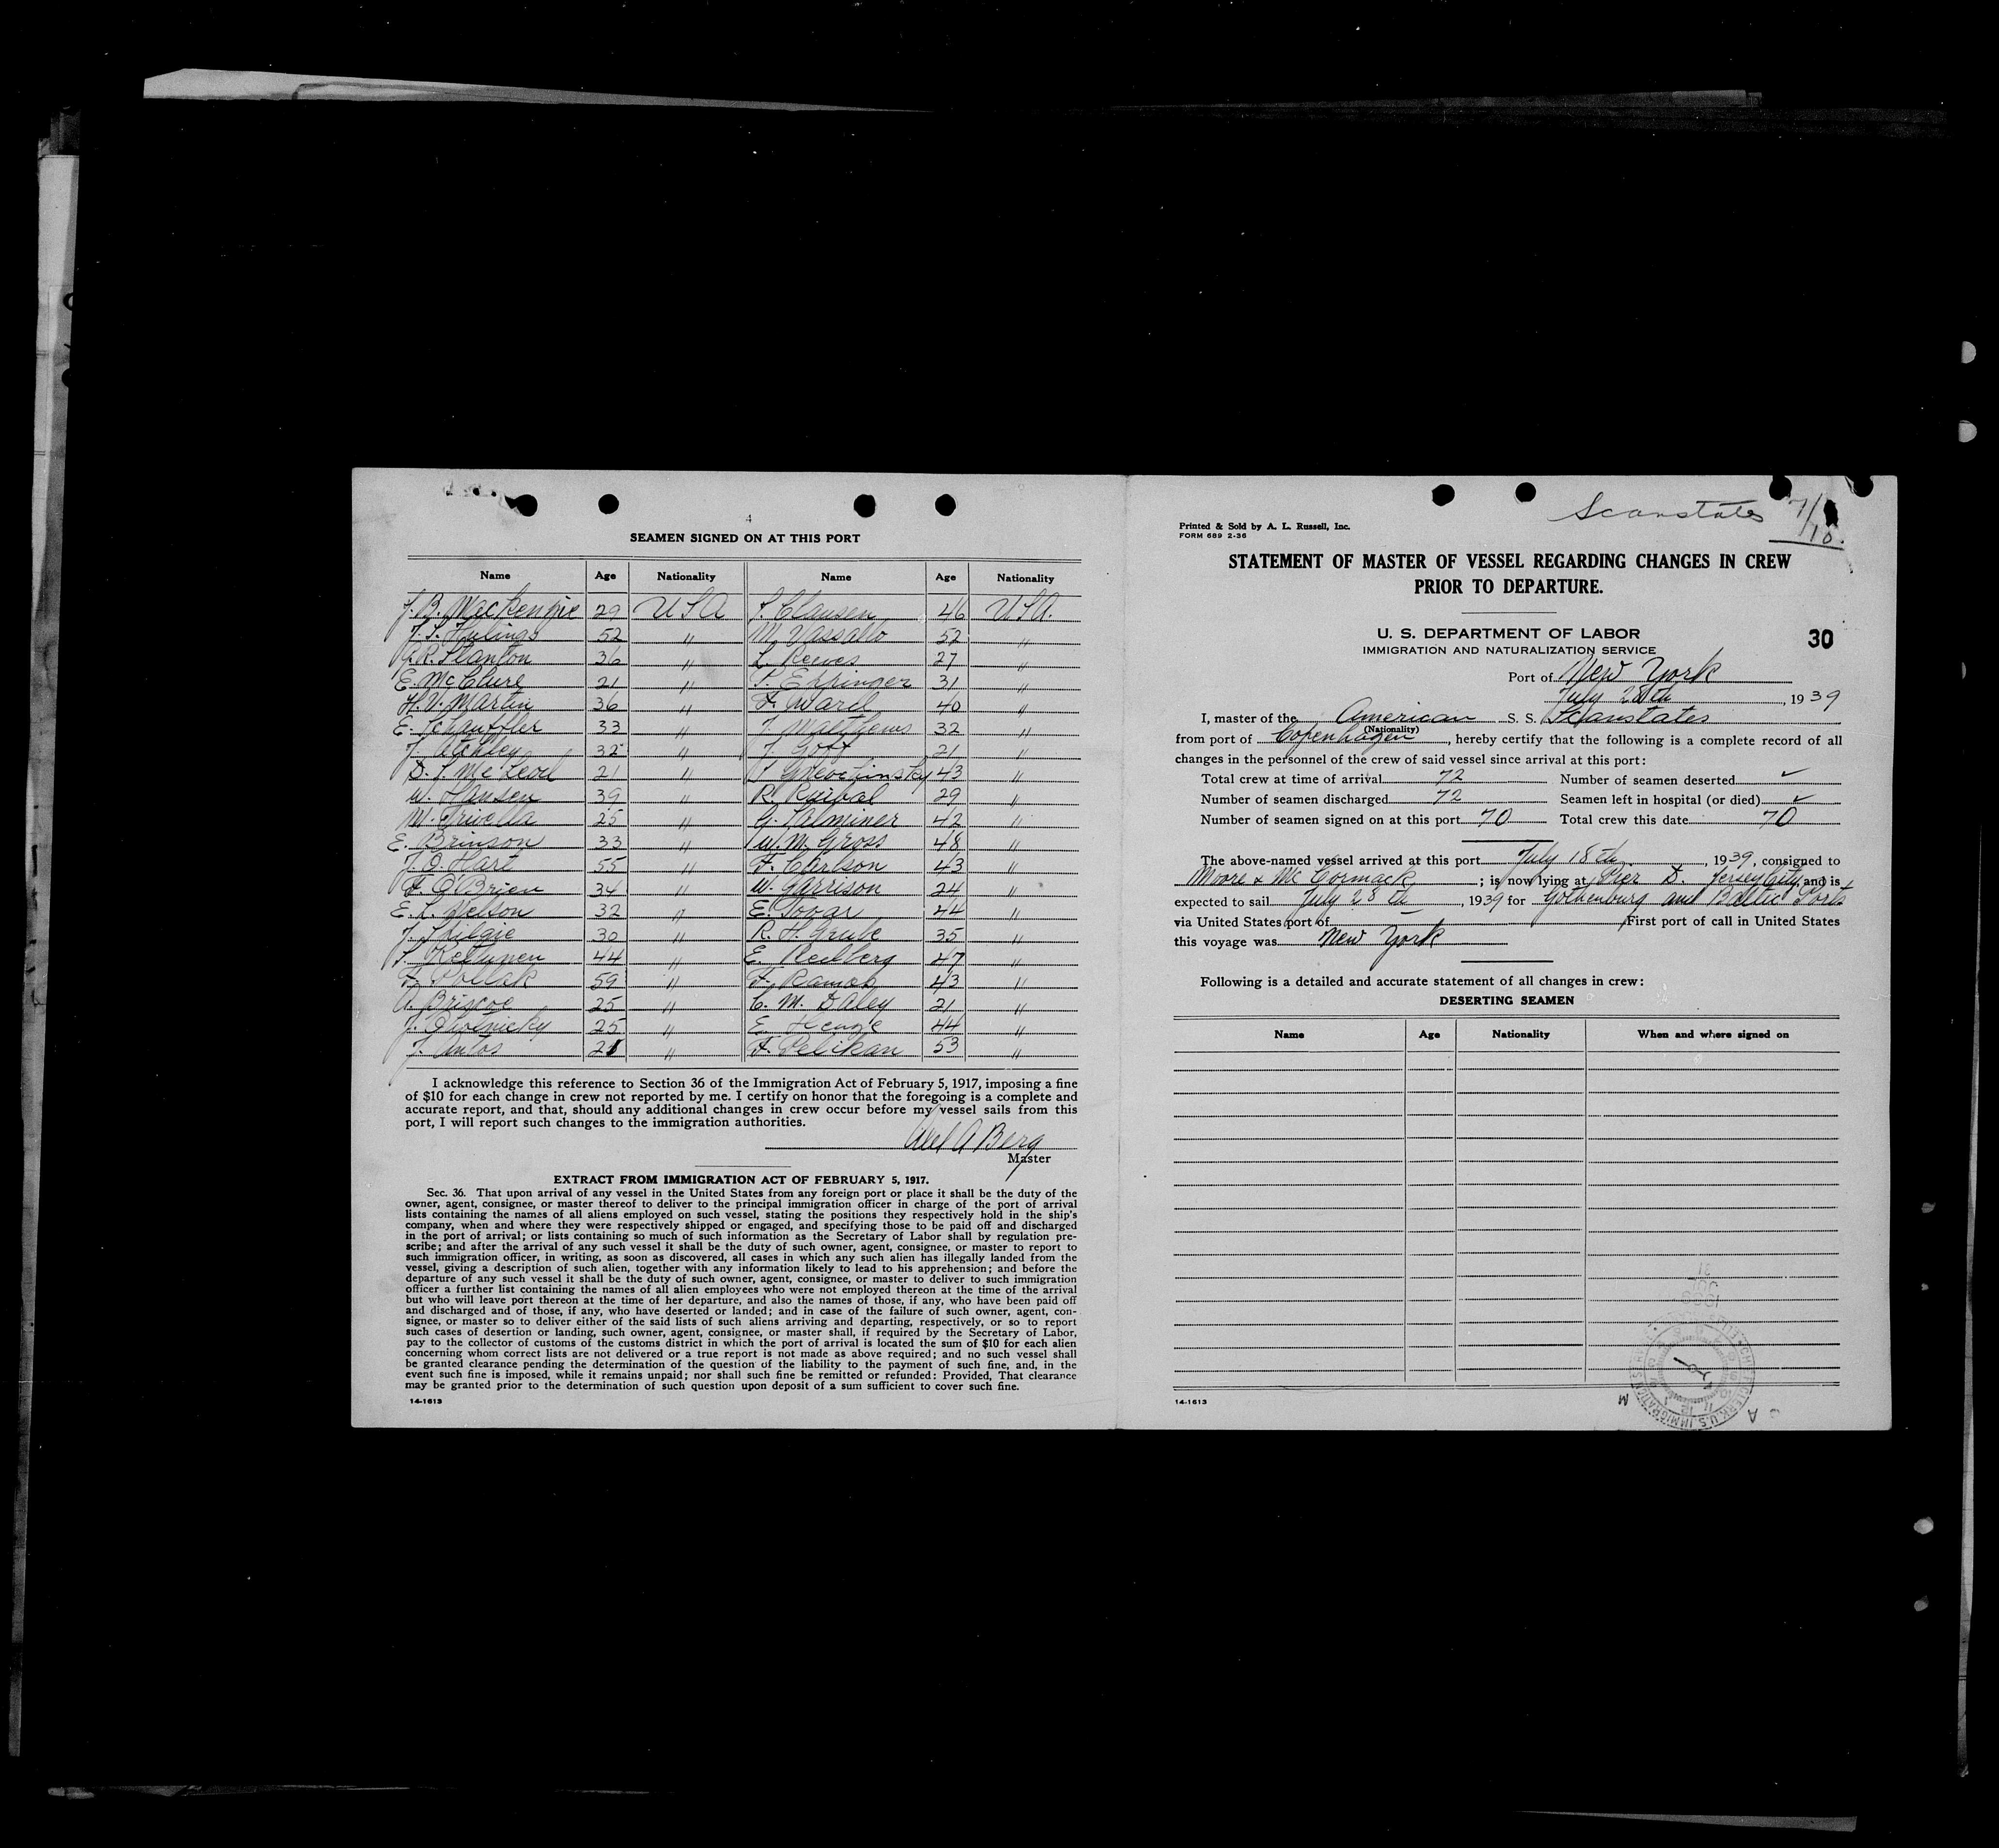 4
SEAMEN SIGNED ON AT THIS PORT
Name Age Nationality Name Age Nationality
J. B. MacKenzie 29 USA Clausen 46 USA.
J. S. Hulings 52 " M. Vassallo 52 "
R. Stanton 36 " L. Reeves 27 "
E. McClure 21 " Eppinger 31 "
H. V. Martin 36 " F. Ward 40 "
E. Schauffler 33 " J. Matthews 32 "
J. Atchley 32 " J. Goff 21 "
D. S. McLeod 21 " 43 "
W. Hansen 39 " R. Ruibal 29 "
M. Trivella 25 " G. 42 "
E. Brinson 33 " W. M. Gross 48 "
J. O. Hart 55 " F. Carlson 43 "
F. O'Brien 34 " W. Garrison 24 "
E. L. Nelson 32 " E. Tovar 44 "
J. 30 " R. H. Grube 35 "
Keltunen 44 " E. Redberg 47 "
F. Pollak 59 " F. Ramos 43 "
A. Briscoe 25 " C. M. Daley 21 "
J. 25 " E. 44 "
J. Antos 21 " F. Pelikan 53 "
I acknowledge this reference to Section 36 of the Immigration Act of February 5, 1917, imposing a fine
of $10 for each change in crew not reported by me. I certify on honor that the foregoing is a complete and
accurate report, and that, should any additional changes in crew occur before my vessel sails from this
port, I will report such changes to the immigration authorities.
A Berg
Master
EXTRACT FROM IMMIGRATION ACT OF FEBRUARY 5, 1917.
Sec. 36. That upon arrival of any vessel in the United States from any foreign port or place it shall be the duty of the
owner, agent, consignee, or master thereof to deliver to the principal immigration officer in charge of the port of arrival
lists containing the names of all aliens employed on such vessel, stating the positions they respectively hold in the ship's
company, when and where they were respectively shipped or engaged, and specifying those to be paid off and discharged
in the port of arrival; or lists containing so much of such information as the Secretary of Labor shall by regulation pre-
scribe; and after the arrival of any such vessel it shall be the duty of such owner, agent, consignee, or master to report to
such immigration officer, in writing, as soon as discovered, all cases in which any such alien has illegally landed from the
vessel, giving a description of such alien, together with any information likely to lead to his apprehension; and before the
departure of any such vessel it shall be the duty of such owner, agent, consignee, or master to deliver to such immigration
officer a further list containing the names of all alien employees who were not employed thereon at the time of the arrival
but who will leave port thereon at the time of her departure, and also the names of those, if any, who have been paid off
and discharged and of those, if any, who have deserted or landed; and in case of the failure of such owner, agent, con-
signee, or master so to deliver either of the said lists of such aliens arriving and departing, respectively, or so to report
such cases of desertion or landing, such owner, agent, consignee, or master shall, if required by the Secretary of Labor,
pay to the collector of customs of the customs district in which the port of arrival is located the sum of $10 for each alien
concerning whom correct lists are not delivered or a true report is not made as above required; and no such vessel shall
be granted clearance pending the determination of the question of the liability to the payment of such fine, and, in the
event such fine is imposed, while it remains unpaid; nor shall such fine be remitted or refunded: Provided, That clearance
may be granted prior to the determination of such question upon deposit of a sum sufficient to cover such fine.
14-1613
Scanstates 7/18.
Printed & Sold by A. L. Russell, Inc.
FORM 689 2-36
STATEMENT OF MASTER OF VESSEL REGARDING CHANGES IN CREW
PRIOR TO DEPARTURE.
U. S. DEPARTMENT OF LABOR
IMMIGRATION AND NATURALIZATION SERVICE
30
Port of New York
July 28th, 1939
I, master of the American S. S. Scanstates
(Nationality)
from port of Copenhagen, hereby certify that the following is a complete record of all
changes in the personnel of the crew of said vessel since arrival at this port:
Total crew at time of arrival 72 Number of seamen deserted ✓
Number of seamen discharged 72 Seamen left in hospital (or died) ✓
Number of seamen signed on at this port 70 Total crew this date 70
The above-named vessel arrived at this port July 18th, 1939, consigned to
Moore & McCormack; is now lying at Pier D. Jersey City, and is
expected to sail July 28th, 1939 for Gothenburg and Baltic Ports
via United States port of First port of call in United States
this voyage was New York
Following is a detailed and accurate statement of all changes in crew:
DESERTING SEAMEN
Name Age Nationality When and where signed on
14-1613